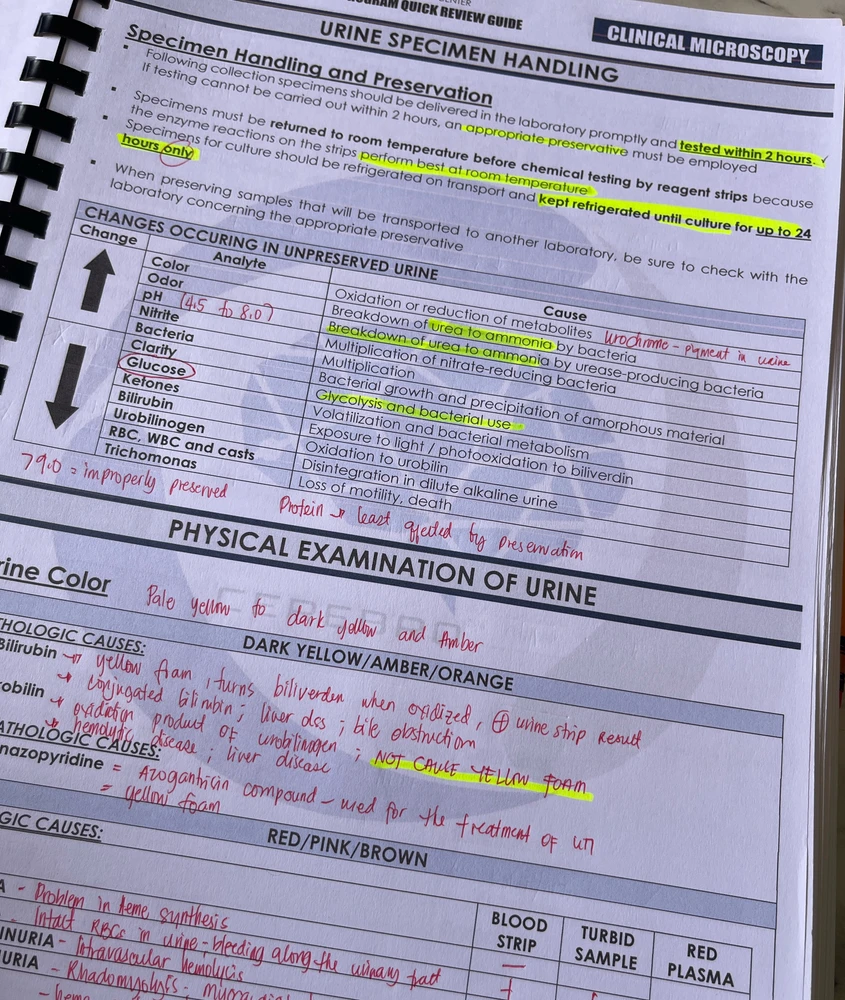 OGRAM QUICK REVIEW GUIDE
CLINICAL MICROSCOPY
URINE SPECIMEN HANDLING
Specimen Handling and Preservation
Following collection specimens should be delivered in the laboratory promptly and tested within 2 hours.
If testing cannot be carried out within 2 hours, an appropriate preservative must be employed
Specimens must be returned to room temperature before chemical testing by reagent strips because
the enzyme reactions on the strips perform best at room temperature
Specimens for culture should be refrigerated on transport and kept refrigerated until culture for up to 24
hours only
When preserving samples that will be transported to another laboratory, be sure to check with the
laboratory concerning the appropriate preservative
CHANGES OCCURING IN UNPRESERVED URINE
Change Analyte Cause
Color Oxidation or reduction of metabolites urochrome - pigment in urine
Odor Breakdown of urea to ammonia by bacteria
pH (4.5 to 8.0) Breakdown of urea to ammonia by urease-producing bacteria
Nitrite Multiplication of nitrate-reducing bacteria
Bacteria Multiplication
Clarity Bacterial growth and precipitation of amorphous material
Glucose Glycolysis and bacterial use
Ketones Volatilization and bacterial metabolism
Bilirubin Exposure to light / photooxidation to biliverdin
Urobilinogen Oxidation to urobilin
RBC, WBC and casts Disintegration in dilute alkaline urine
Trichomonas Loss of motility, death
79.0 = improperly preserved
Protein → least affected by preservation
PHYSICAL EXAMINATION OF URINE
rine Color
Pale yellow to dark yellow and Amber
DARK YELLOW/AMBER/ORANGE
THOLOGIC CAUSES:
Bilirubin → yellow foam, turns biliverden when oxidized, ⊕ urine strip result
→ conjugated bilirubin; liver dss; bile obstruction
robilin → oxidation product of urobilinogen; NOT CAUSE YELLOW FOAM
→ hemolytic disease; liver disease
ATHOLOGIC CAUSES:
nazopyridine = Azogantricin compound - used for the treatment of UTI
= yellow foam
RED/PINK/BROWN
GIC CAUSES:
BLOOD STRIP TURBID SAMPLE RED PLASMA
A - Problem in heme synthesis
- Intact RBCs in urine - bleeding along the urinary tract
INURIA - Intravascular hemolysis
URIA - Rhadomyolysis -